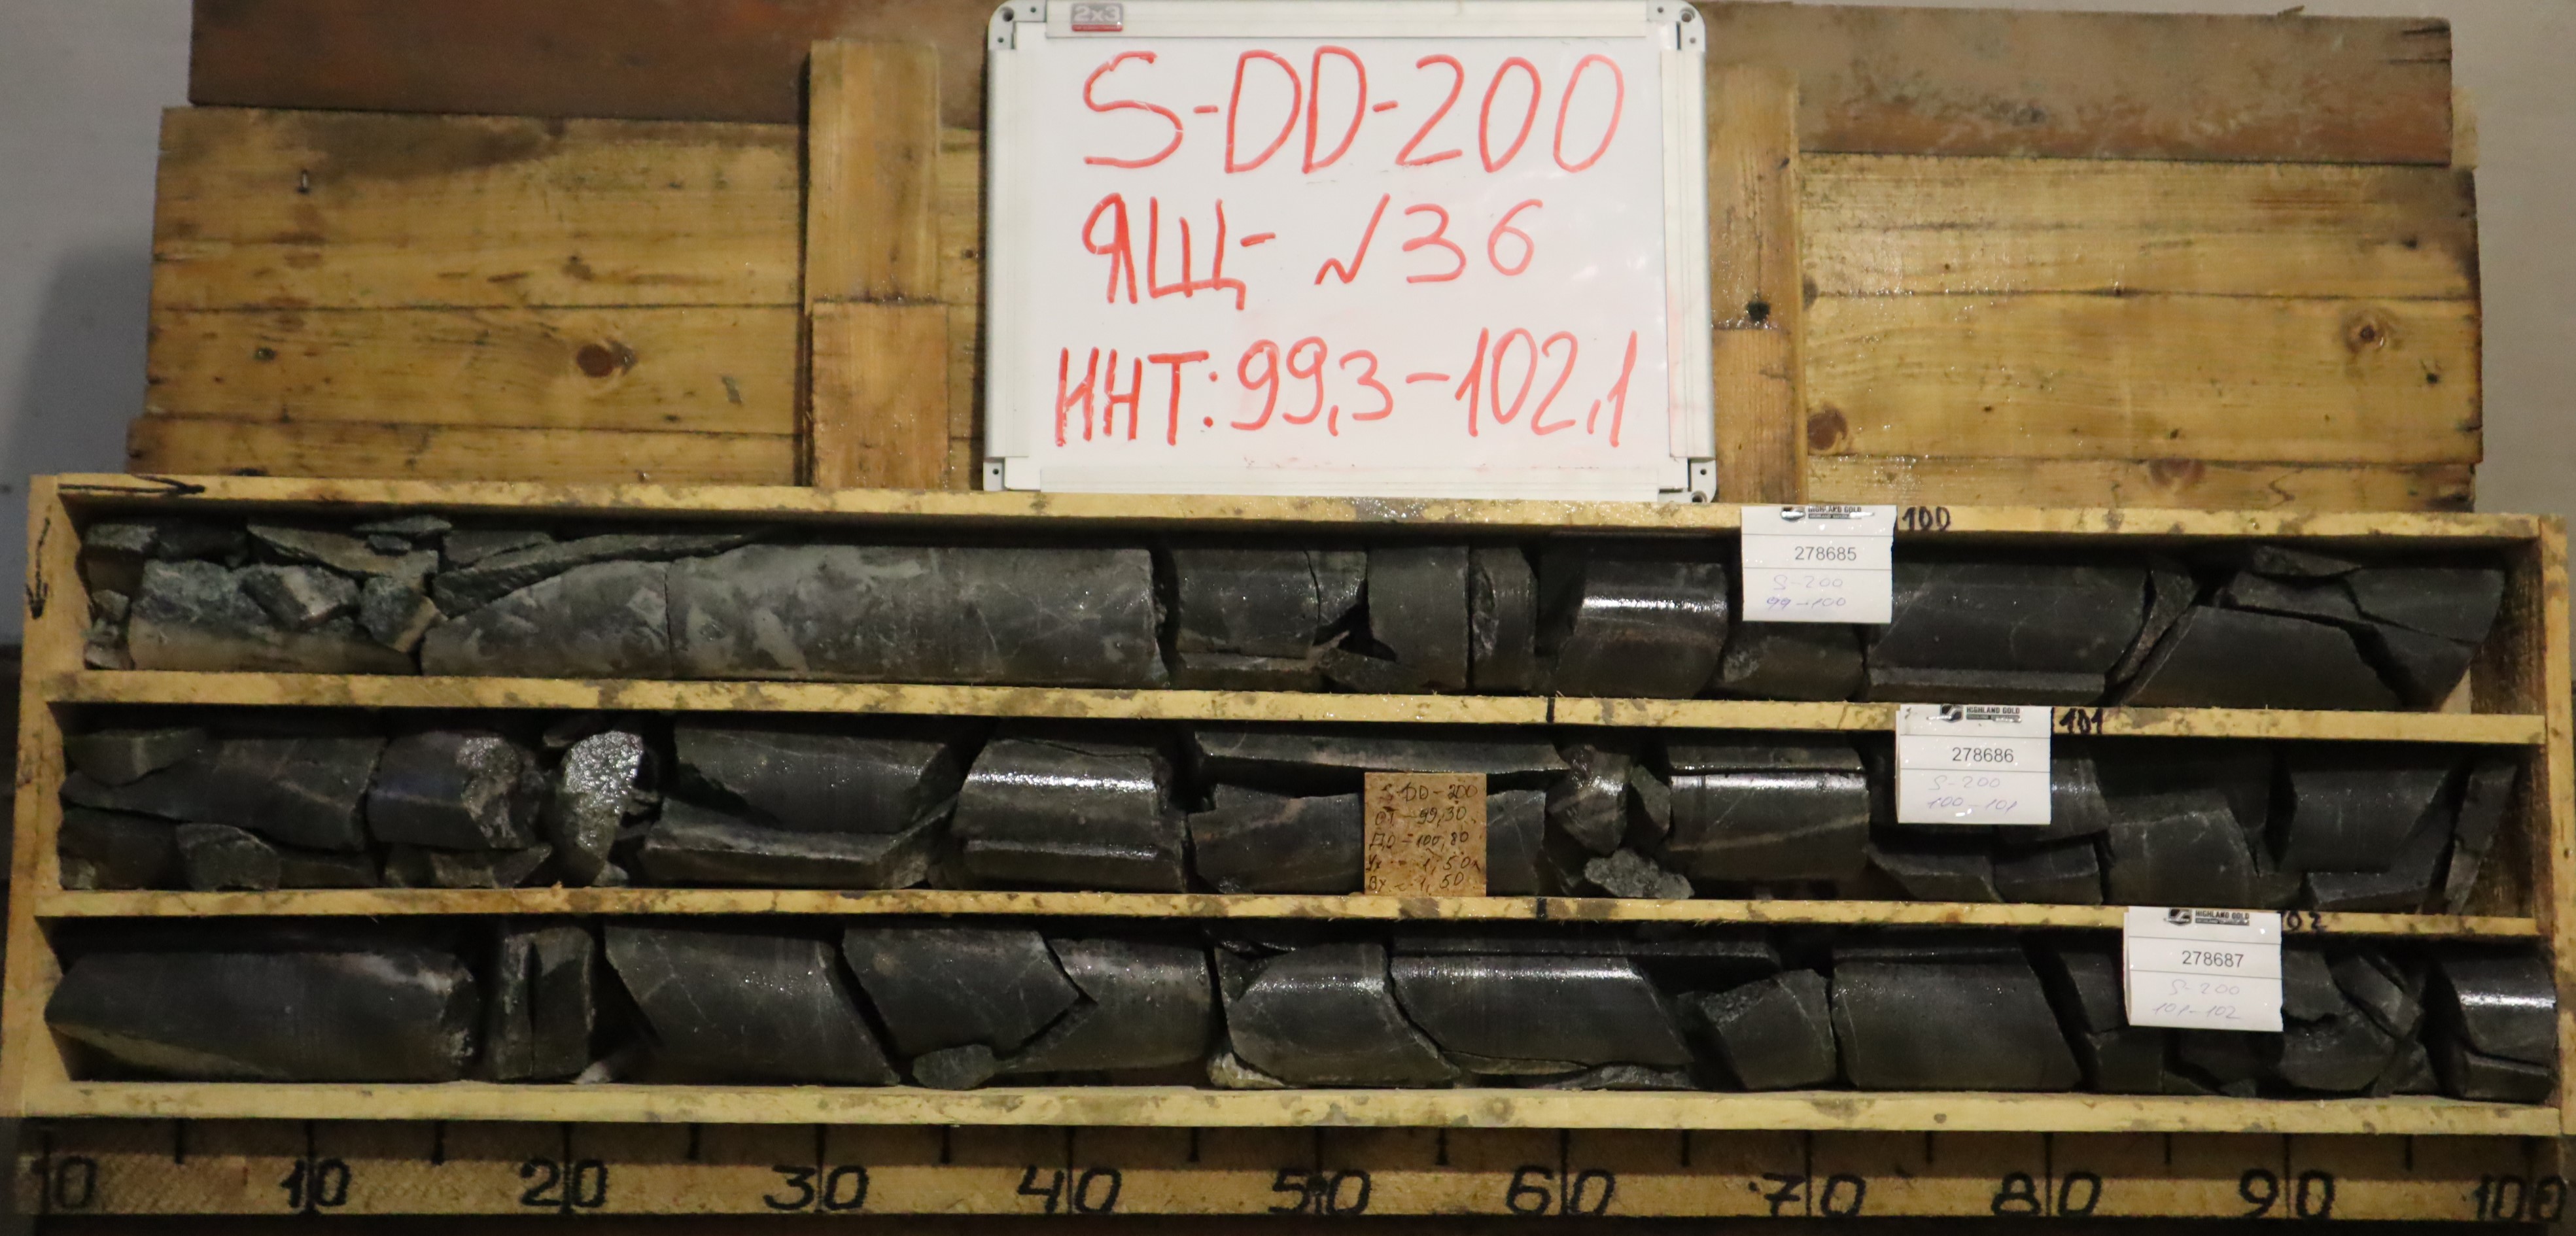 2x3
S-DD-200
ЯЩ- №36
ИНТ: 99,3-102,1
HIGHLAND GOLD
100
278685
S-200
99-100
HIGHLAND GOLD
101
278686
S-200
100-101
S-DD-200
ОТ-99,30
ДО-100,80
1,50
1,50
HIGHLAND GOLD
102
278687
S-200
101-102
0 10 20 30 40 50 60 70 80 90 100